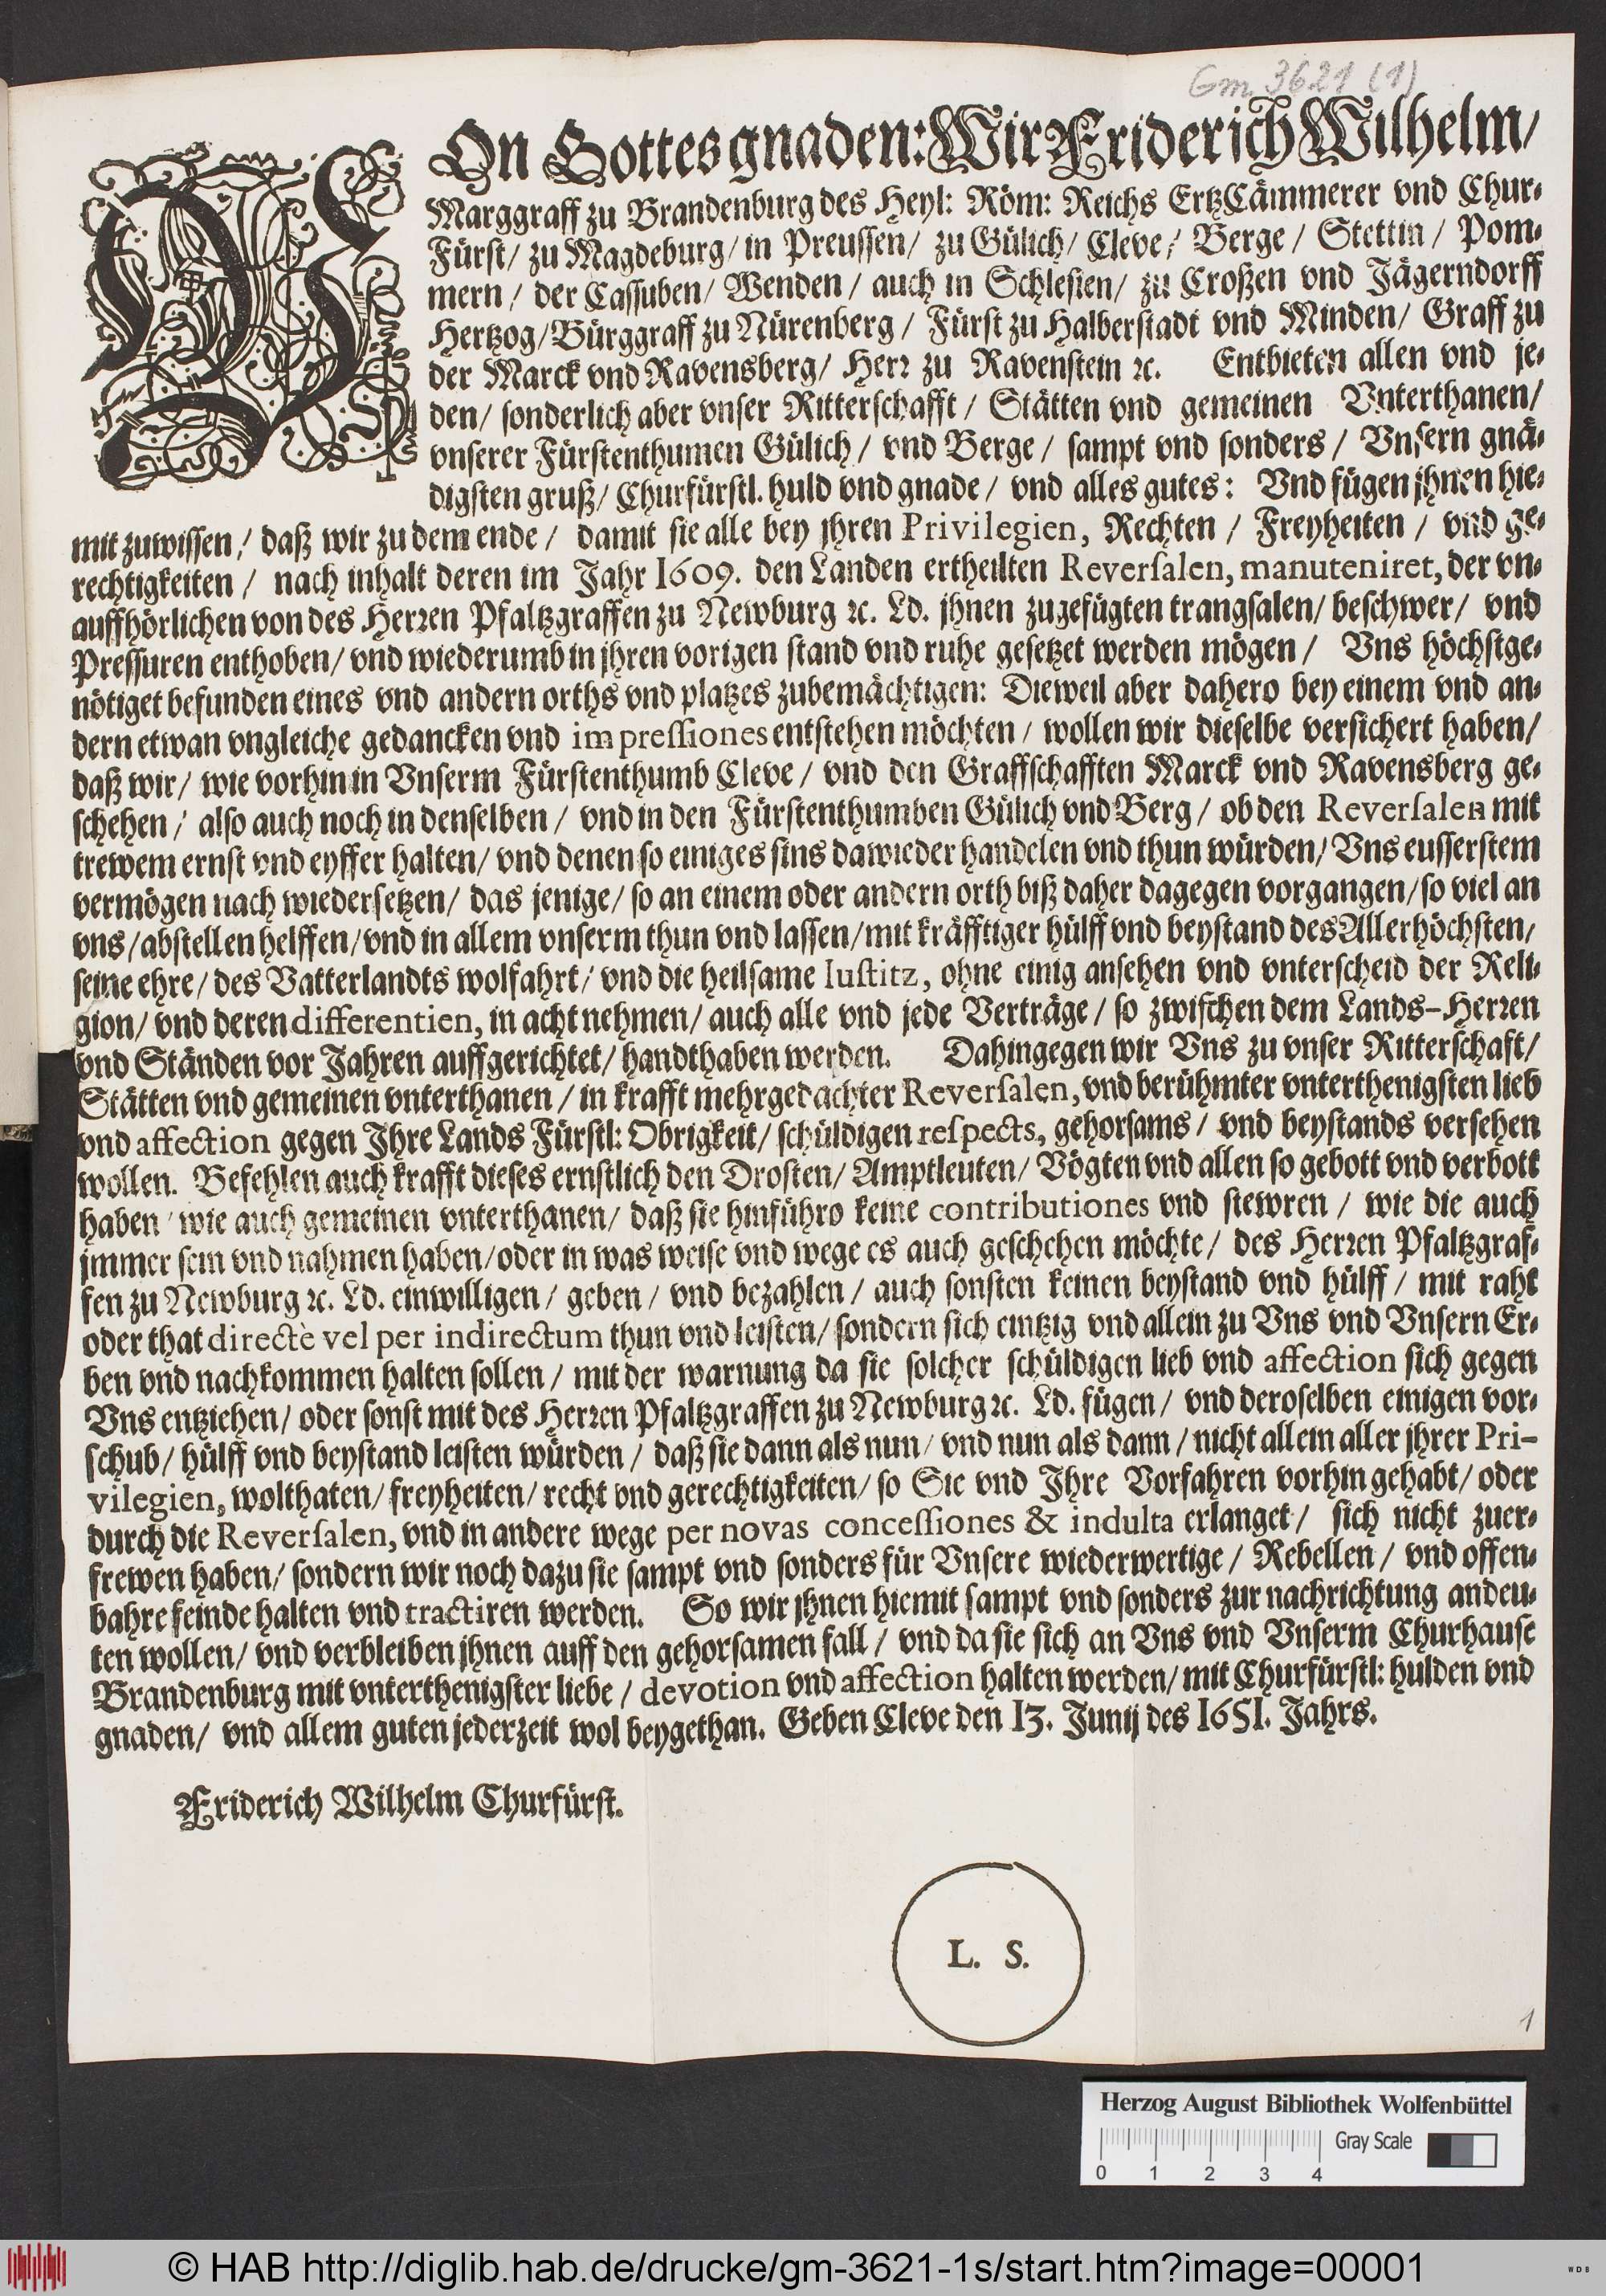 Gm 3621 (1)
VOn Gottes gnaden: Wir Friderich Wilhelm/
Marggraff zu Brandenburg des Heyl: Röm: Reichs ErtzCämmerer vnd Chur-
Fürst/ zu Magdeburg/ in Preussen/ zu Gülich/ Cleve/ Berge/ Stettin/ Pom-
mern/ der Cassuben/ Wenden/ auch in Schlesien/ zu Croßen vnd Jägerndorff
Hertzog/ Bürggraff zu Nürenberg/ Fürst zu Halberstadt vnd Minden/ Graff zu
der Marck vnd Ravensberg/ Herr zu Ravenstein ꝛc. Entbieten allen vnd je-
den/ sonderlich aber vnser Ritterschafft/ Stätten vnd gemeinen Vnterthanen/
vnserer Fürstenthumen Gülich/ vnd Berge/ sampt vnd sonders/ Vnsern gnä-
digsten gruß/ Churfürstl. huld vnd gnade/ vnd alles gutes: Vnd fügen jhnen hie-
mit zuwissen/ daß wir zu dem ende/ damit sie alle bey jhren Privilegien, Rechten/ Freyheiten/ vnd ge-
rechtigkeiten/ nach inhalt deren im Jahr 1609. den Landen ertheilten Reverſalen, manuteniret, der vn-
auffhörlichen von des Herren Pfaltzgraffen zu Newburg ꝛc. Ld. jhnen zugefügten trangsalen/ beschwer/ vnd
Pressuren enthoben/ vnd wiederumb in jhren vorigen stand vnd ruhe gesetzet werden mögen/ Vns höchstge-
nötiget befunden eines vnd andern orths vnd platzes zubemächtigen: Dieweil aber dahero bey einem vnd an-
dern etwan vngleiche gedancken vnd impreſſiones entstehen möchten/ wollen wir dieselbe versichert haben/
daß wir/ wie vorhin in Vnserm Fürstenthumb Cleve/ vnd den Graffschafften Marck vnd Ravensberg ge-
schehen/ also auch noch in denselben/ vnd in den Fürstenthumben Gülich vnd Berg/ ob den Reverſalen mit
trewem ernst vnd eyffer halten/ vnd denen so einiges sins dawieder handelen vnd thun würden/ Vns eusserstem
vermögen nach wiedersetzen/ das jenige/ so an einem oder andern orth biß daher dagegen vorgangen/ so viel an
vns/ abstellen helffen/ vnd in allem vnserm thun vnd lassen/ mit kräfftiger hülff vnd beystand des Allerhöchsten/
seine ehre/ des Vatterlandts wolfahrt/ vnd die heilsame Iuſtitz, ohne einig ansehen vnd vnterscheid der Reli-
gion/ vnd deren differentien, in acht nehmen/ auch alle vnd jede Verträge/ so zwischen dem Lands-Herren
vnd Ständen vor Jahren auffgerichtet/ handthaben werden. Dahingegen wir Vns zu vnser Ritterschaft/
Stätten vnd gemeinen vnterthanen/ in krafft mehrgedachter Reverſalen, vnd berühmter vnterthenigsten lieb
vnd affection gegen Ihre Lands Fürstl: Obrigkeit/ schüldigen reſpects, gehorsams/ vnd beystands versehen
wollen. Befehlen auch krafft dieses ernstlich den Drosten/ Amptleuten/ Vögten vnd allen so gebott vnd verbott
haben/ wie auch gemeinen vnterthanen/ daß sie hinführo keine contributiones vnd stewren/ wie die auch
jmmer sein vnd nahmen haben/ oder in was weise vnd wege es auch geschehen möchte/ des Herren Pfaltzgraf-
fen zu Newburg ꝛc. Ld. einwilligen/ geben/ vnd bezahlen/ auch sonsten keinen beystand vnd hülff/ mit raht
oder that directè vel per indirectum thun vnd leisten/ sondern sich eintzig vnd allein zu Vns vnd Vnsern Er-
ben vnd nachkommen halten sollen/ mit der warnung da sie solcher schüldigen lieb vnd affection sich gegen
Vns entziehen/ oder sonst mit des Herren Pfaltzgraffen zu Newburg ꝛc. Ld. fügen/ vnd deroselben einigen vor-
schub/ hülff vnd beystand leisten würden/ daß sie dann als nun/ vnd nun als dann/ nicht allein aller jhrer Pri-
vilegien, wolthaten/ freyheiten/ recht vnd gerechtigkeiten/ so Sie vnd Ihre Vorfahren vorhin gehabt/ oder
durch die Reverſalen, vnd in andere wege per novas conceſſiones & indulta erlanget/ sich nicht zuer-
frewen haben/ sondern wir noch dazu sie sampt vnd sonders für Vnsere wiederwertige/ Rebellen/ vnd offen-
bahre feinde halten vnd tractiren werden. So wir jhnen hiemit sampt vnd sonders zur nachrichtung andeu-
ten wollen/ vnd verbleiben jhnen auff den gehorsamen fall/ vnd da sie sich an Vns vnd Vnserm Churhause
Brandenburg mit vnterthenigster liebe/ devotion vnd affection halten werden/ mit Churfürstl: hulden vnd
gnaden/ vnd allem guten jederzeit wol beygethan. Geben Cleve den 13. Junij des 1651. Jahrs.
Friderich Wilhelm Churfürst.
L. S.
1
Herzog August Bibliothek Wolfenbüttel
Gray Scale
0 1 2 3 4
© HAB http://diglib.hab.de/drucke/gm-3621-1s/start.htm?image=00001
WDB